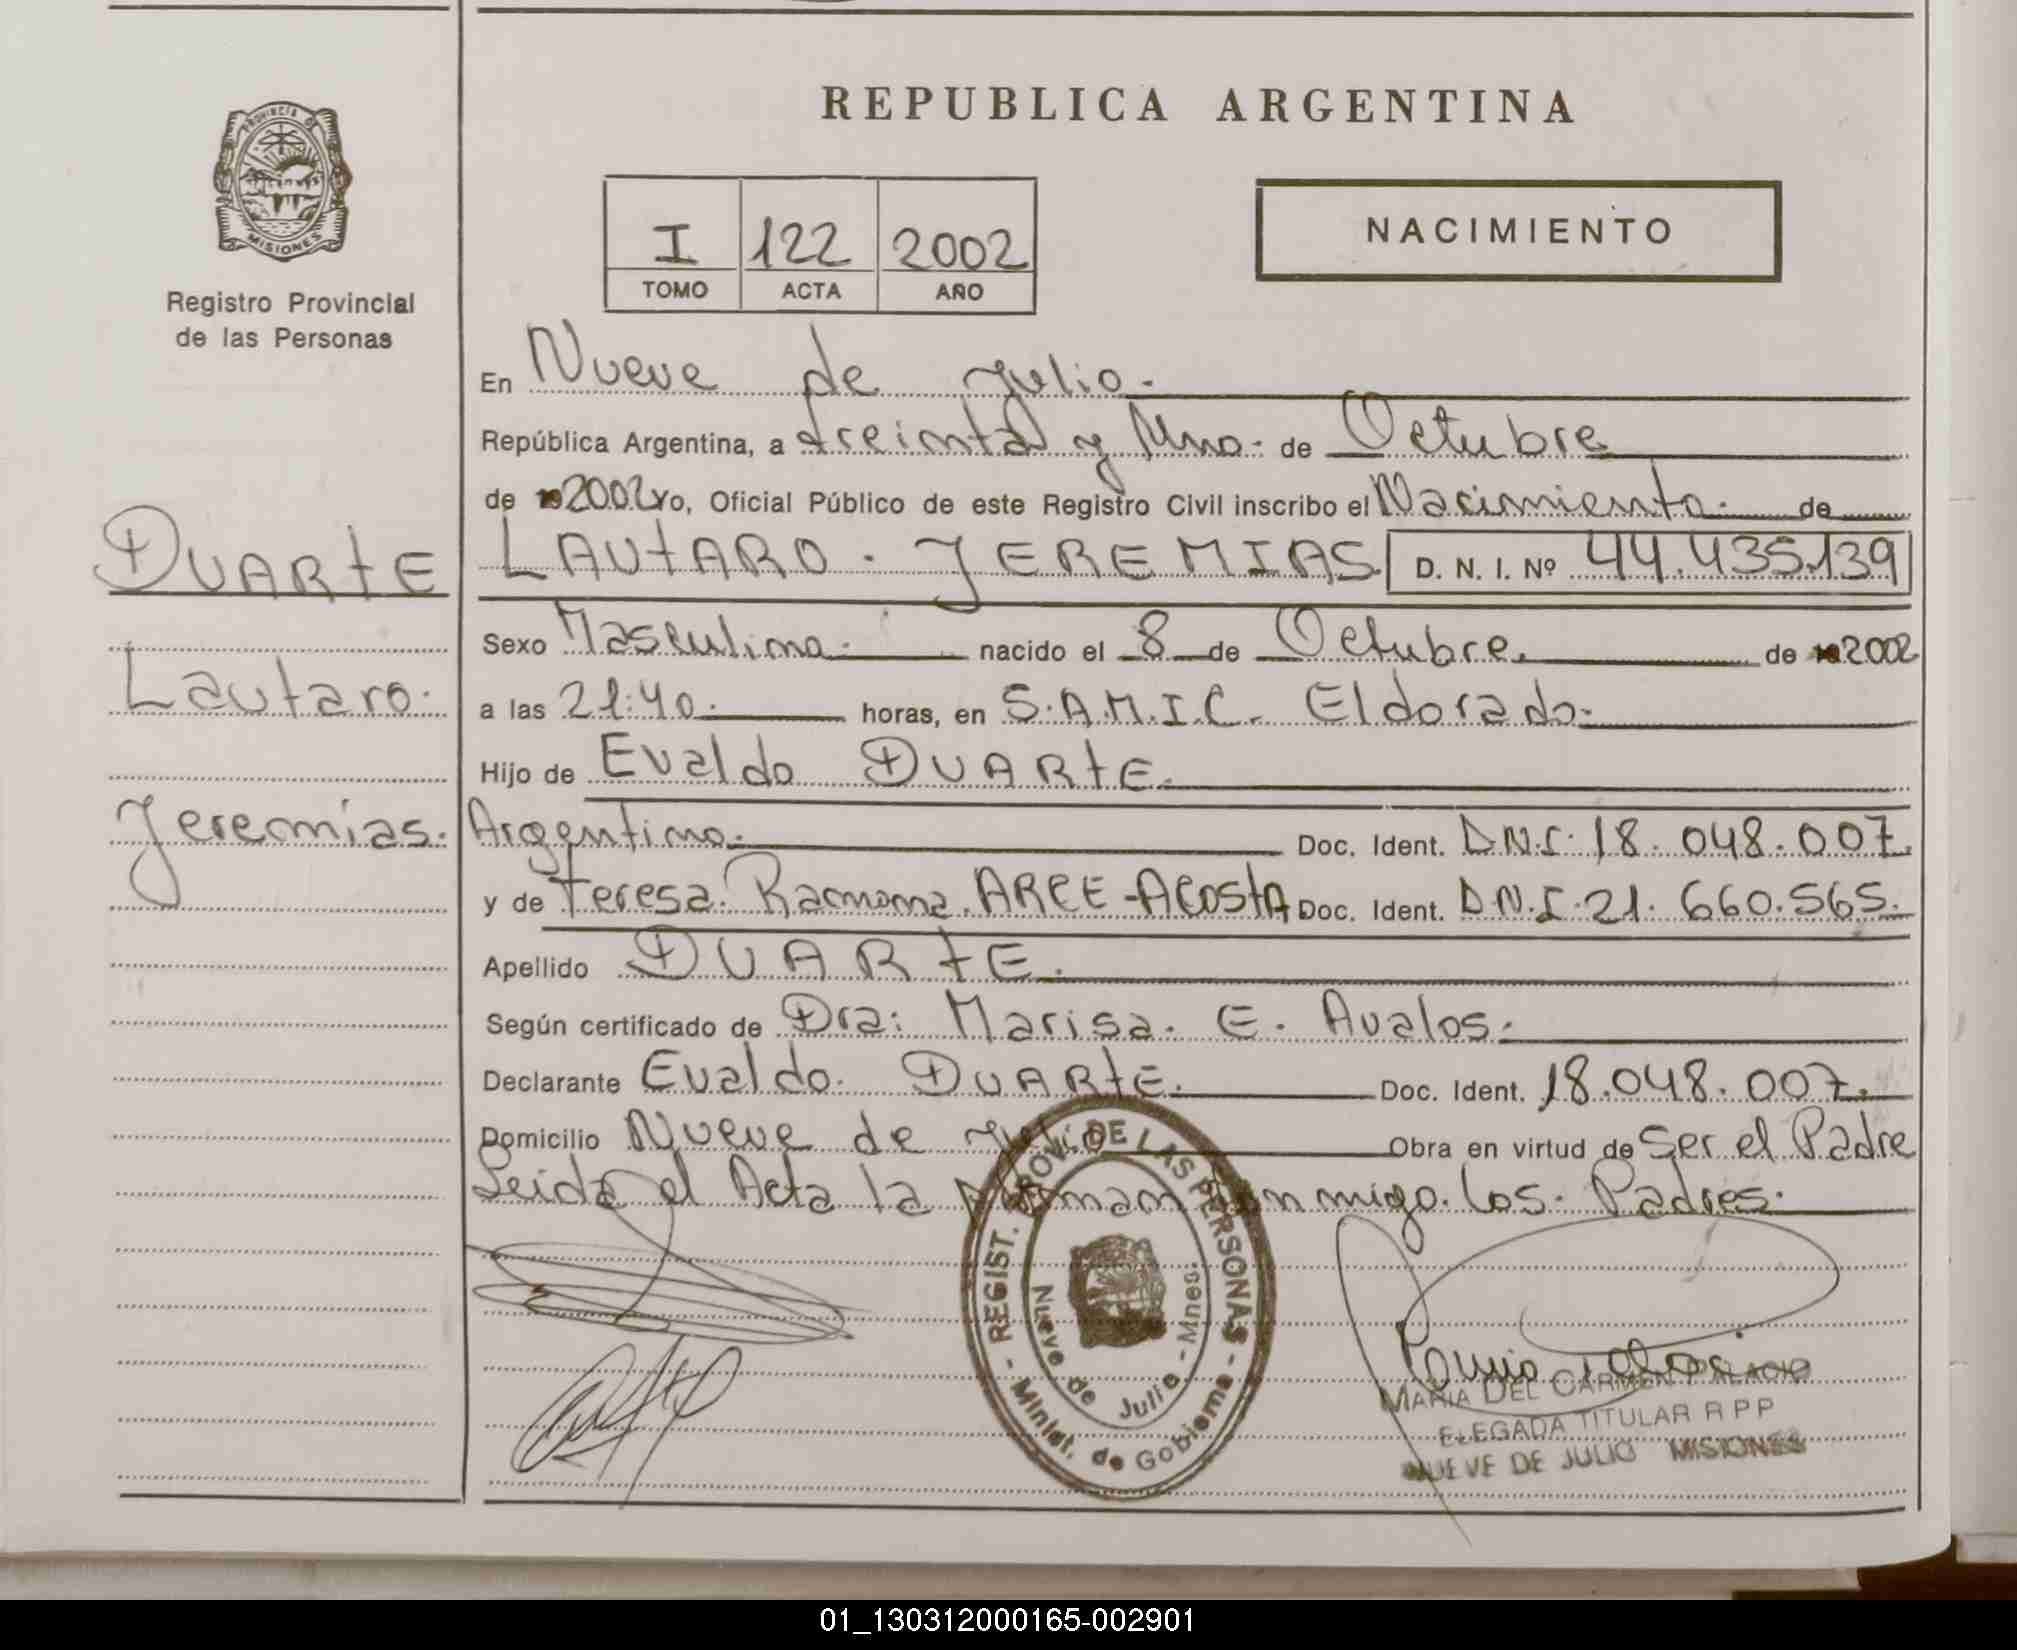 REPUBLICA ARGENTINA
PROVINCIA DE
MISIONES
Registro Provincial
de las Personas
I 122 2002
TOMO ACTA AÑO
NACIMIENTO
DUARTE
Lautaro.
Jeremías.
En Nueve de Julio.
República Argentina, a treinta y Uno. de Octubre
de 2002 Yo, Oficial Público de este Registro Civil inscribo el Nacimiento. de
LAUTARO. JEREMIAS D. N. I. Nº 44.435.139
Sexo Masculino. nacido el 8 de Octubre. de 2002
a las 21:40. horas, en S.A.M.I.C. Eldorado.
Hijo de Evaldo DUARTE.
Argentino. Doc. Ident. D.N.I. 18.048.007.
y de Teresa. Ramona. ARCE-ACOSTA Doc. Ident. D.N.I. 21.660.565.
Apellido DUARTE.
Según certificado de Dra: Marisa. E. Avalos.
Declarante Evaldo. DUARTE. Doc. Ident. 18.048.007.
Domicilio Nueve de Julio Obra en virtud de Ser el Padre
Leida el Acta la firman conmigo. los. Padres.
- REGIST. PROV. DE LAS PERSONAS -
Minist. de Gobierno
Nueve de Julio - Mnes.
MARIA DEL CARMEN PALACIO
DELEGADA TITULAR R P P
NUEVE DE JULIO MISIONES
01_130312000165-002901